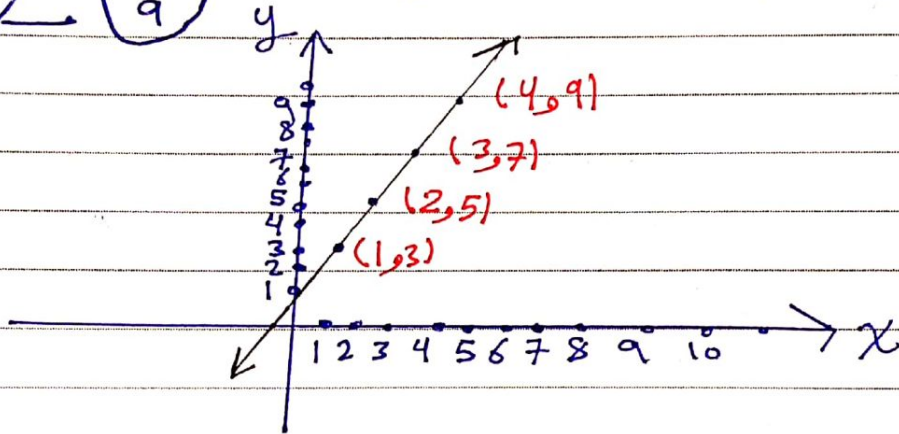 9
y
9
8
7
6
5
4
3
2
1
(4,9)
(3,7)
(2,5)
(1,3)
1 2 3 4 5 6 7 8 9 10
x